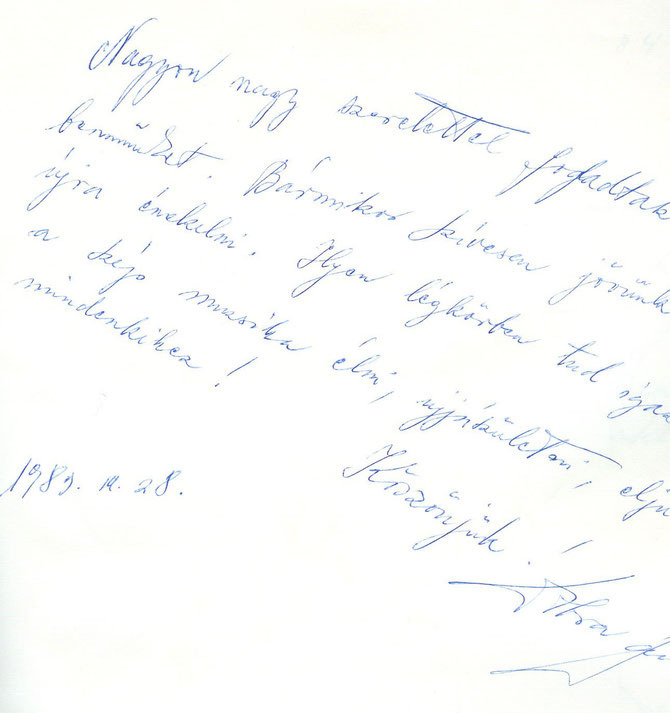 Nagyon nagy szeretettel fogadtak
bennünket. Bármikor szívesen jövünk
újra énekelni. Ilyen légkörben tud igaz
a szép muzsika élni, újjászületni, elju
mindenkihez!
Köszönjük!
1989. 28.